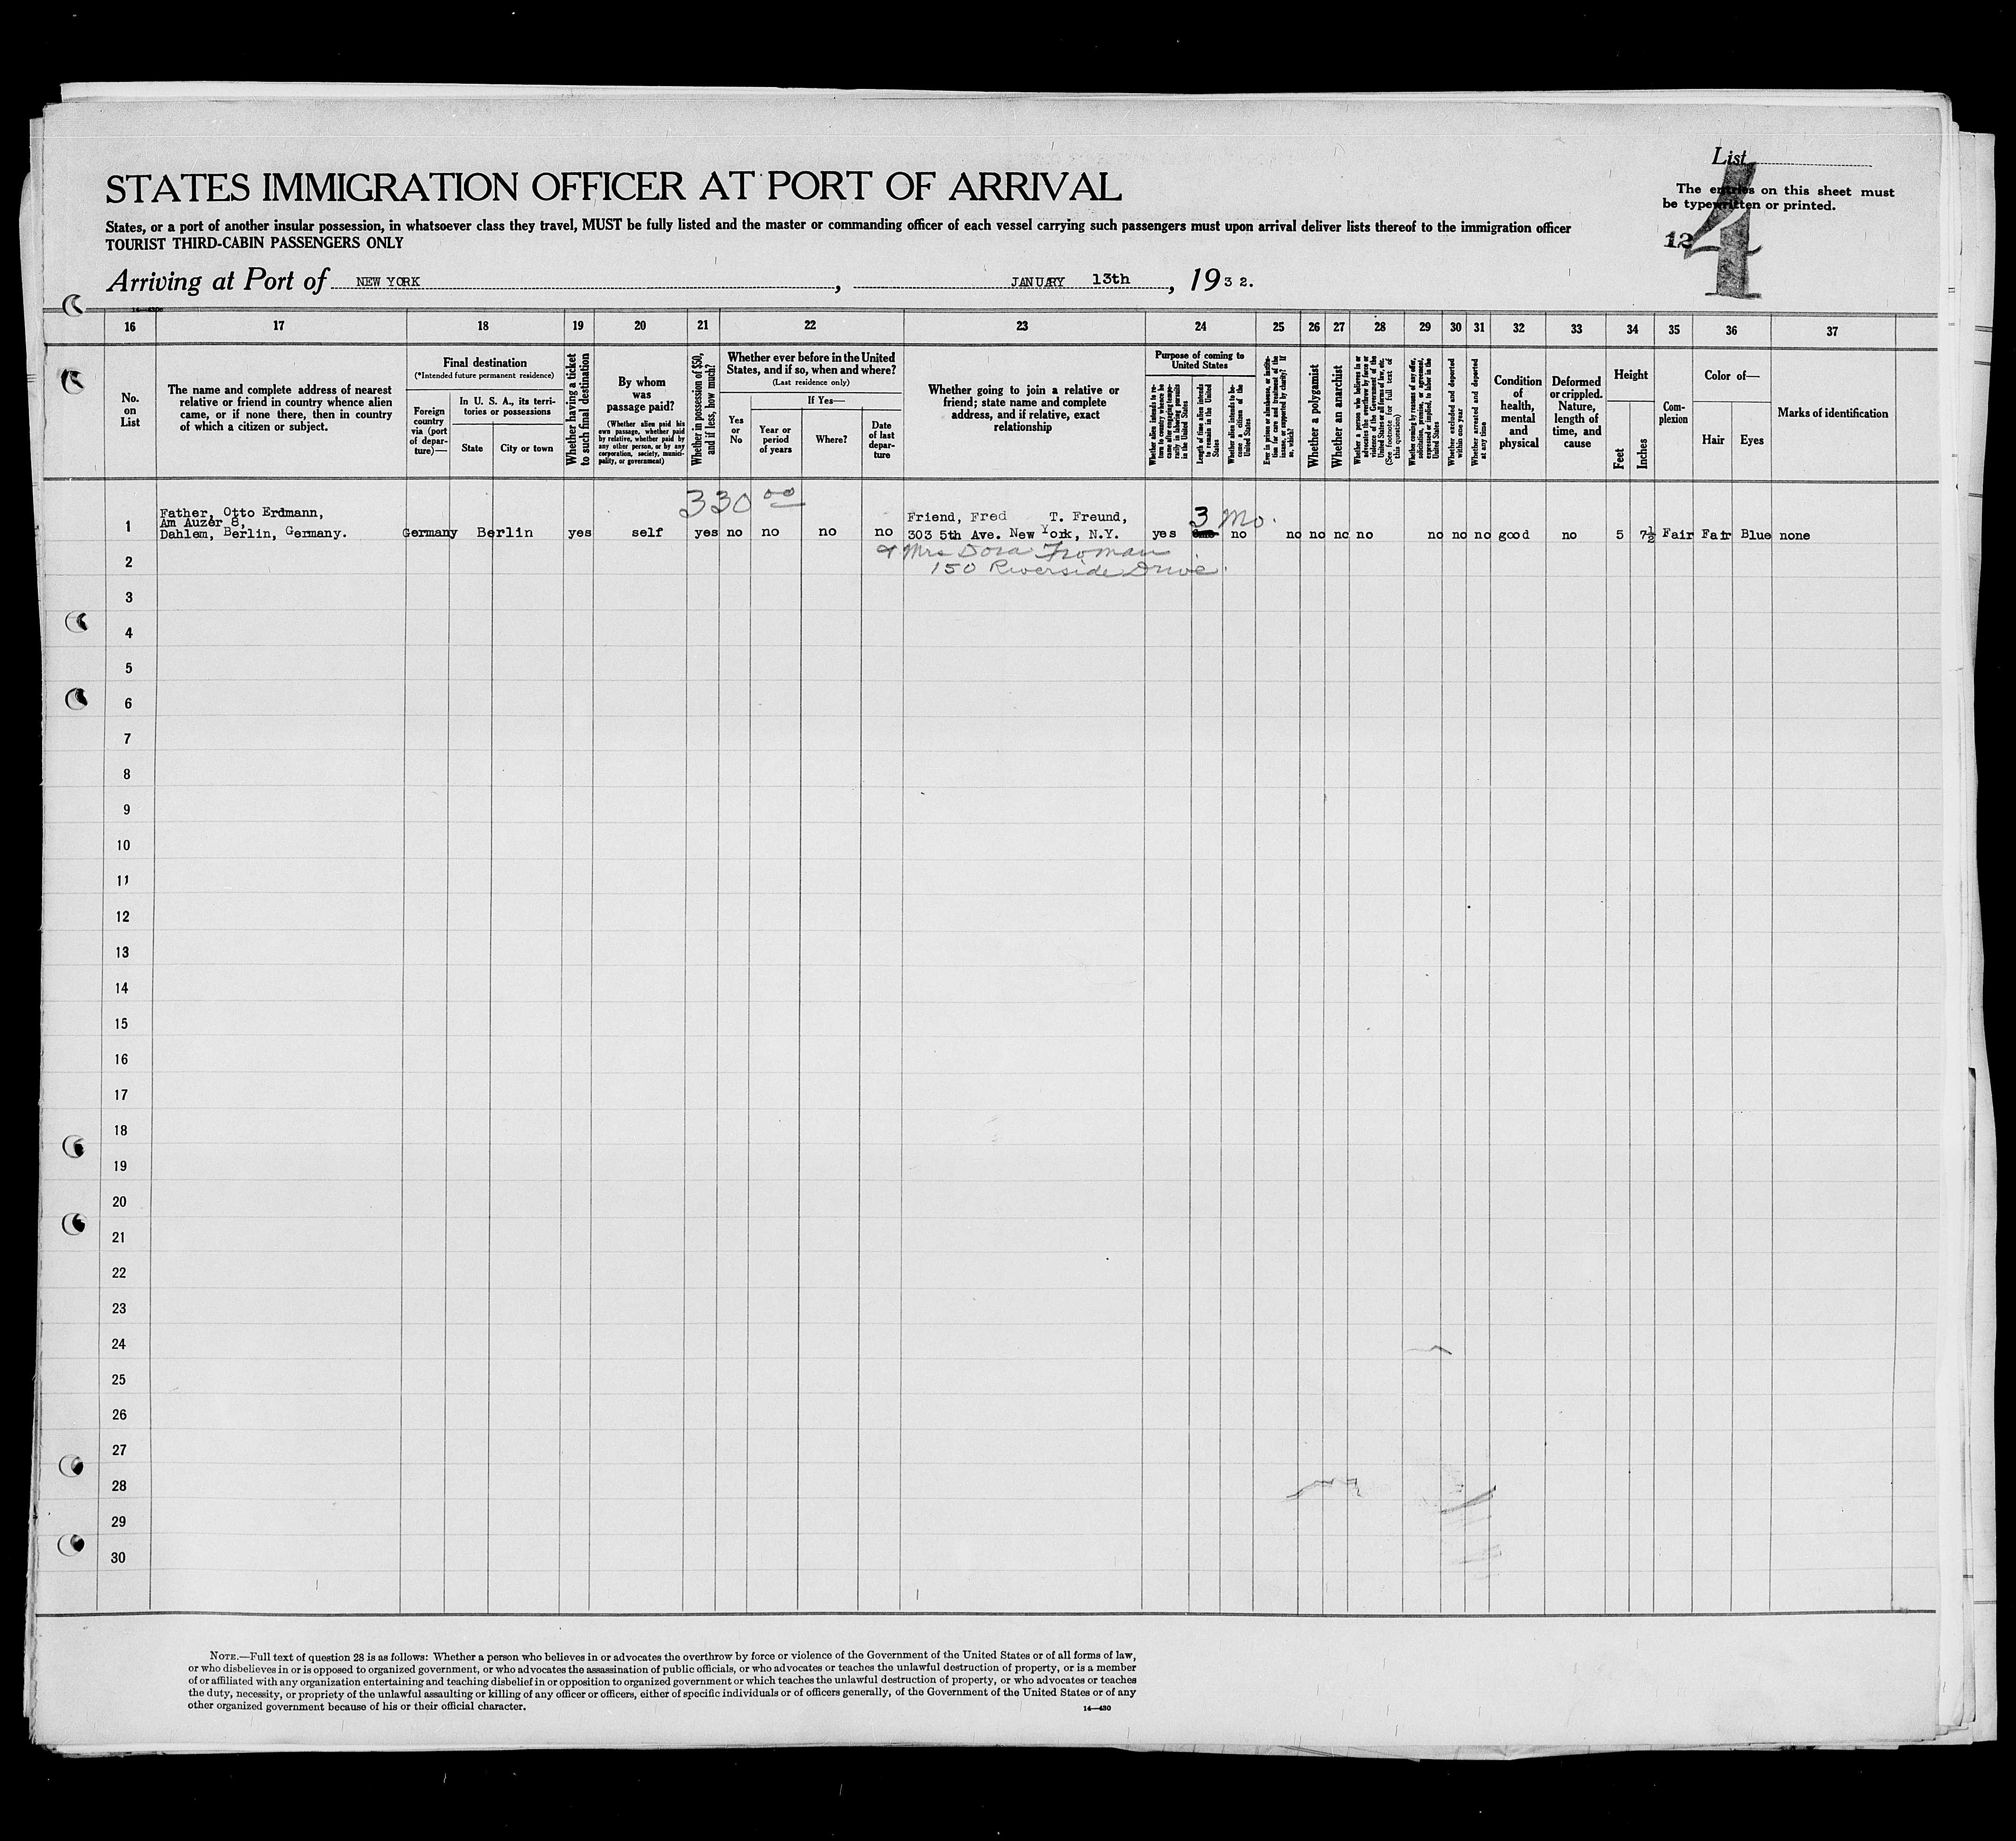 List
The entries on this sheet must
be typewritten or printed.
4
12
STATES IMMIGRATION OFFICER AT PORT OF ARRIVAL
States, or a port of another insular possession, in whatsoever class they travel, MUST be fully listed and the master or commanding officer of each vessel carrying such passengers must upon arrival deliver lists thereof to the immigration officer
TOURIST THIRD-CABIN PASSENGERS ONLY
Arriving at Port of NEW YORK, JANUARY 13th, 1932.
16 17 18 19 20 21 22 23 24 25 26 27 28 29 30 31 32 33 34 35 36 37
No.
on
List
The name and complete address of nearest
relative or friend in country whence alien
came, or if none there, then in country
of which a citizen or subject.
Final destination
(*Intended future permanent residence)
Foreign
country
via (port
of depar-
ture)—
In U. S. A., its terri-
tories or possessions
State
City or town
Whether having a ticket
to such final destination
By whom
was
passage paid?
(Whether alien paid his
own passage, whether paid
by relative, whether paid
by any other person, or by any
corporation, society, munici-
pality, or government)
Whether in possession of $50,
and if less, how much?
Whether ever before in the United
States, and if so, when and where?
(Last residence only)
Yes
or
No
If Yes—
Year or
period
of years
Where?
Date
of last
depar-
ture
Whether going to join a relative or
friend; state name and complete
address, and if relative, exact
relationship
Purpose of coming to
United States
Whether alien intends to re-
turn to country whence he
came after engaging tempo-
rarily in laboring pursuits
in the United States
Length of time alien intends
to remain in the United
States
Whether alien intends to be-
come a citizen of the
United States
Ever in prison or almshouse, or institu-
tion for care and treatment of the
insane, or supported by charity? If
so, which?
Whether a polygamist
Whether an anarchist
Whether a person who believes in or
advocates the overthrow by force or
violence of the Government of the
United States or all forms of law, etc.
(See footnote for full text of
this question)
Whether coming by reasons of any offer,
solicitation, promise, or agreement,
expressed or implied, to labor in the
United States
Whether excluded and deported
within one year
Whether arrested and deported
at any time
Condition
of
health,
mental
and
physical
Deformed
or crippled.
Nature,
length of
time, and
cause
Height
Feet
Inches
Com-
plexion
Color of—
Hair
Eyes
Marks of identification
330 00
3 Mo.
1
Father, Otto Erdmann,
Am Auzer 8,
Dahlem, Berlin, Germany.
Germany Berlin yes self yes no no no no
Friend, Fred T. Freund,
303 5th Ave. New York, N.Y.
yes no no no no no no no no good no 5 7½ Fair Fair Blue none
Mrs Dora Froman
150 Riverside Drive.
2
3
4
5
6
7
8
9
10
11
12
13
14
15
16
17
18
19
20
21
22
23
24
25
26
27
28
29
30
NOTE.—Full text of question 28 is as follows: Whether a person who believes in or advocates the overthrow by force or violence of the Government of the United States or of all forms of law,
or who disbelieves in or is opposed to organized government, or who advocates the assassination of public officials, or who advocates or teaches the unlawful destruction of property, or is a member
of or affiliated with any organization entertaining and teaching disbelief in or opposition to organized government or which teaches the unlawful destruction of property, or who advocates or teaches
the duty, necessity, or propriety of the unlawful assaulting or killing of any officer or officers, either of specific individuals or of officers generally, of the Government of the United States or of any
other organized government because of his or their official character.
14—430